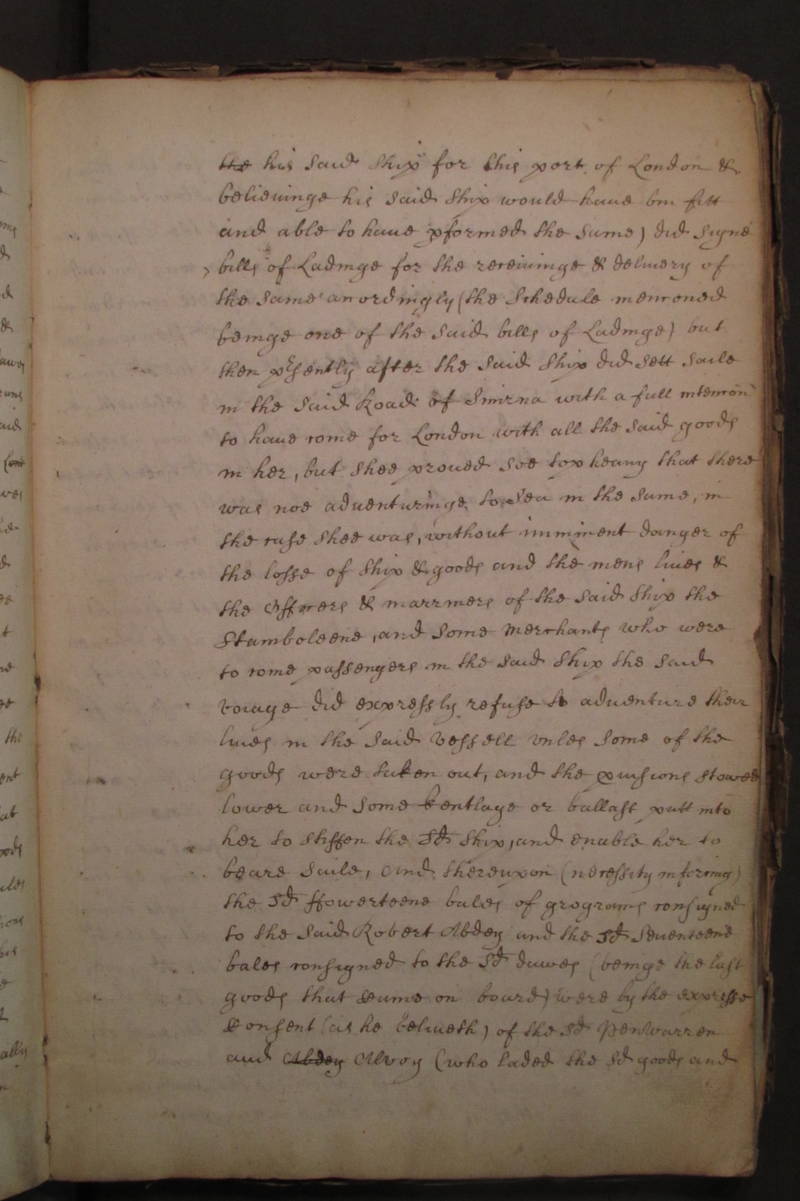 the his said ship for this port of London &
believinge his said ship would have bin fitt
and able to have pformed the same) did signe
bills of Ladinge for the receivinge & delivery of
the same accordingly (the Schedule mencioned
beinge one of the said bills of Ladinge) but
then presently after the said ship did sett saile
in the said Road of Smirna with a full intencion
to have come for London with all the said goods
in her, but shee proved soe top heavy that there
was noe adventuringe to Sea in the same, in
the case shee was, without imminent danger of
the losse of ship & goods and the mens lives &
the Officers & marriners of the said ship the
Stamboleene, and some Merchants who were
to come passengers in the said ship the said
voiage did expressly refuse to adventure their
lives in the said vessell unles some of the
goods were taken out, and the pvisions stowed
lower and some kentlage or ballast putt into
her to stiffen the Sd ship, and enable her to
beare saile, And thereupon (necessity inforcing)
the Sd ffowerteene bales of grograms consigned
to the said Robert Abdey and the Sd Seventeene
bales consigned to the Sd dawes (beinge the last
goods that came on board) were by the expresse
Consent (as he believeth) of the Sd Penwarren
and Abdey Alvoy (who laded the Sd goods and